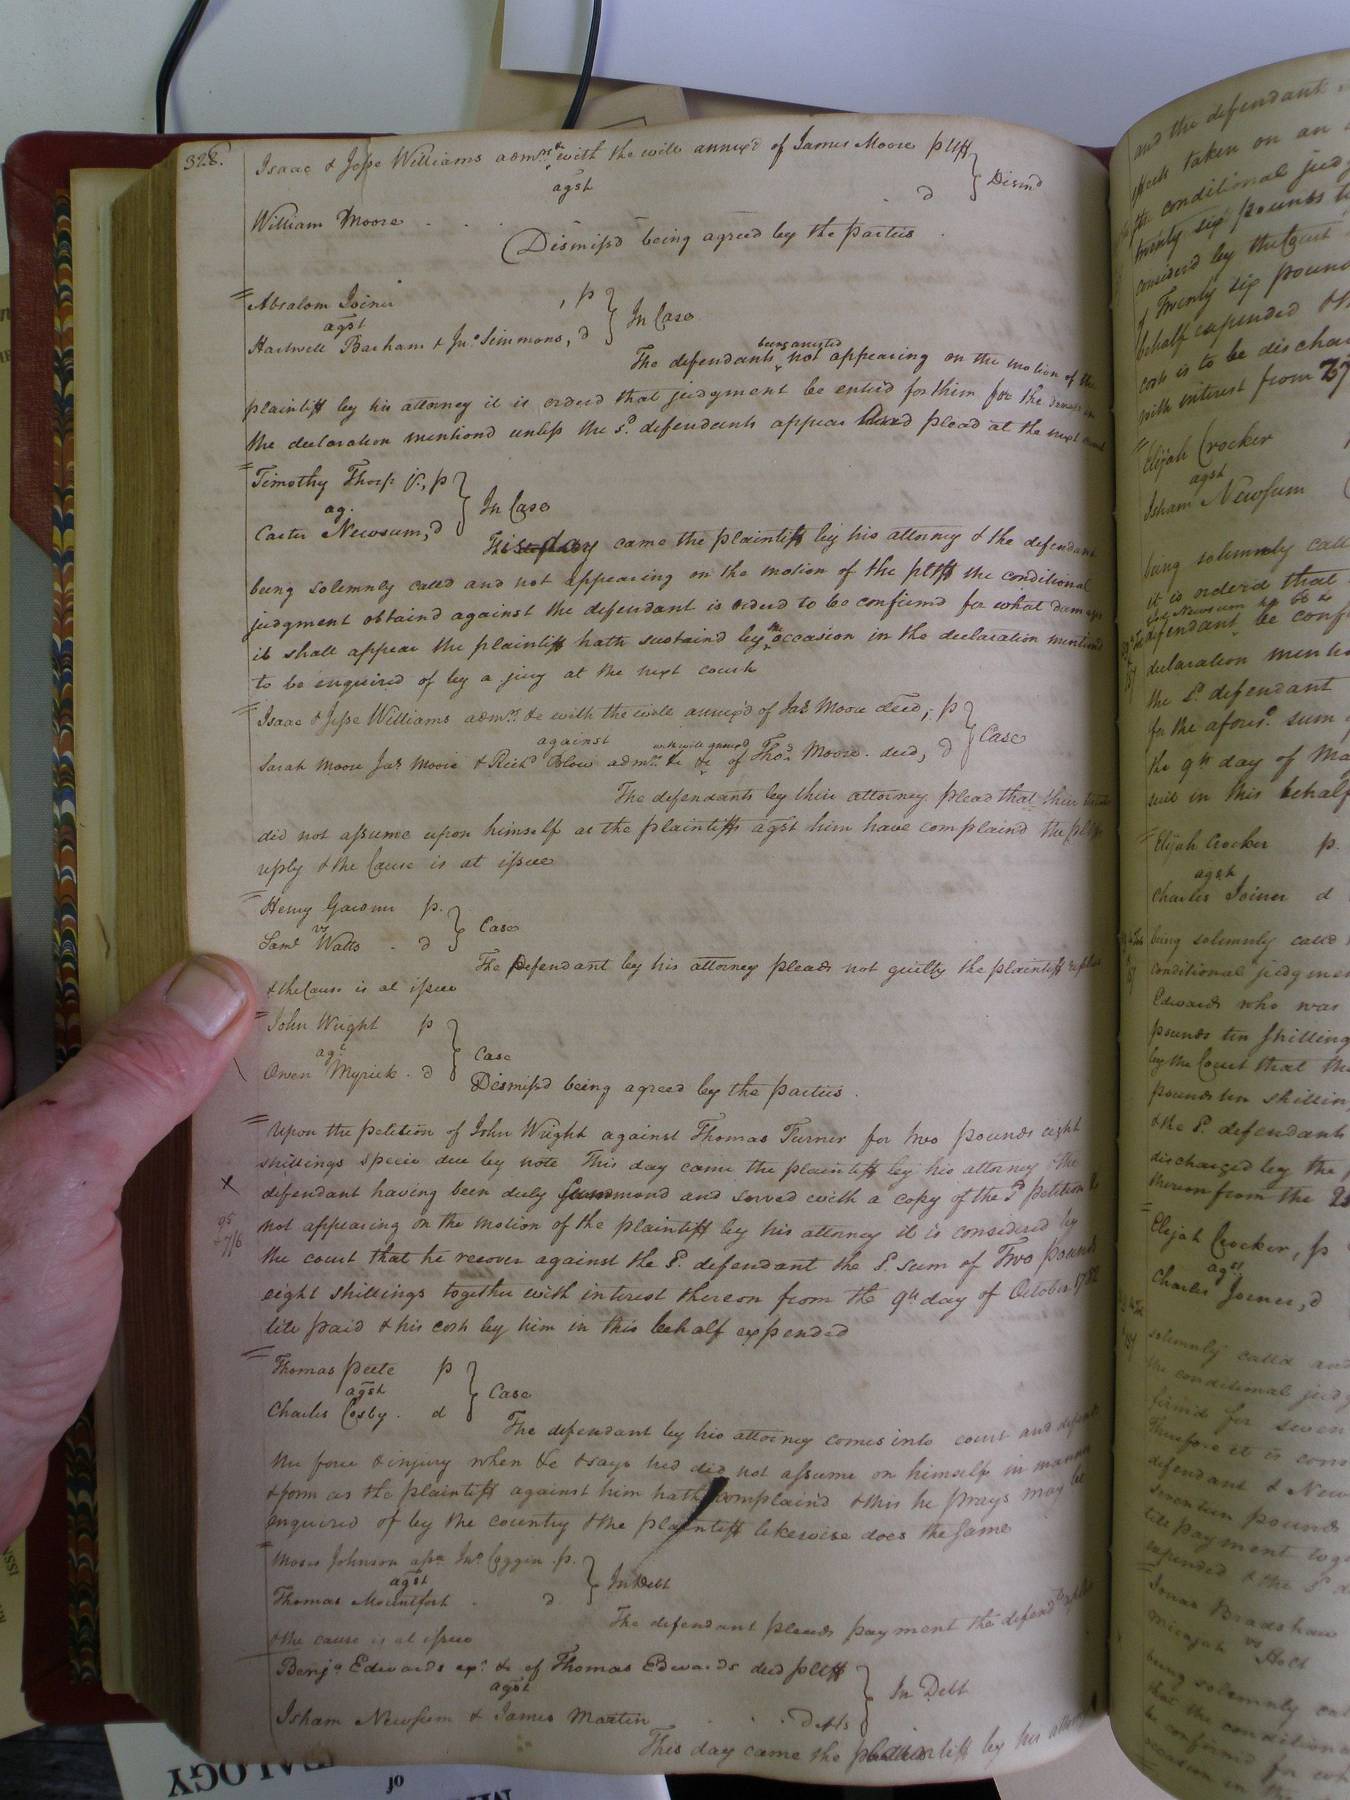 328.
Isaac & Jesse Williams admrs. &c with the will annexd of James Moore pltff
agst } Dismd
William Moore d
Dismissd being agreed by the parties
Absalom Joiner , p
agst } In Case
Hartwell Barham & Jno. Simmons, d
being arrested
The defendants not appearing on the motion of the
plaintiff by his attorney it is orderd that judgment be enterd for them for the damages in
the declaration mentiond unless the sd. defendants appear and plead at the next court
Timothy Thorp jr., p
ag. } In Case
Carter Newsum, d
This day came the plaintiff by his attorney & the defendant
being solemnly calld and not appearing on the motion of the pltff the conditional
judgment obtaind against the defendant is orderd to be confirmd for what damages
it shall appear the plaintiff hath sustaind by the occasion in the declaration mentiond
to be enquired of by a jury at the next court
Isaac & Jesse Williams admrs. &c with the will annexd of Jas. Moore decd, p
against } Case
Sarah Moore Jas Moore & Richd Blow admrs. &c &c with will annexd of Thos. Moore decd, d
The defendants by their attorney plead that their testator
did not assume upon himself as the plaintiffs agst him have complaind the pltffs
reply & the Cause is at issue
Henry Gardner p.
vs } Case
Saml Watts . d
The Defendant by his attorney pleads not guilty the plaintiff replies
& the Cause is at issue
John Wright p
agt } Case
Owen Myrick . d
Dismissd being agreed by the parties .
Upon the petition of John Wright against Thomas Turner for two pounds eight
shillings specie due by note This day came the plaintiff by his attorney & the
x defendant having been duly Summond and served with a copy of the sd petition &
95
& 7/6
not appearing on the motion of the plaintiff by his attorney it is considered by
the court that he recover against the sd. defendant the sd. sum of Two pounds
eight shillings together with interest thereon from the 9th day of October 1782
till paid & his costs by him in this behalf expended
Thomas Peete p
agst } Case
Charles Cosby . d
The defendant by his attorney comes into court and defends
the force & injury when &c & says he did not assume on himself in manner
& form as the plaintiff against him hath complaind & this he prays may be
enquired of by the country & the plaintiff likewise does the same
Moses Johnson asse. Jno. Coggin . p.
agst } In Debt
Thomas Mountfort . d
The defendant pleads payment the defendt. replies
& the cause is at issue
Benja Edwards exr. &c of Thomas Edwards decd pltff
agst } In Debt
Isham Newsum & James Martin . . . Defts
This day came the plaintiff by his attorney
and the defendant
taken on an
the conditional judg
twenty six pounds
considerd by the Court
of Twenty six pounds
behalf expended & th
costs is to be dischar
with interest from 27
Elijah Crocker
agst
Isham Newsum
being solemnly calld
it is orderd that
defendant be conf
declaration mentio
the sd. defendant
for the aforesd. sum
the 9th day of Ma
suit in this behalf
Elijah Crocker p.
agst
Charles Joiner d
being solemnly calld
conditional judgmen
Edwards who was
pounds ten shilling
by the Court that the
pounds ten shillin
& the sd. defendants
discharged by the
thereon from the 25
Elijah Crocker, p
agst
Charles Joiner, d
solemnly calld and
the conditional judg
firmd for seven
Therefore it is cons
defendant & New
seventeen pounds
till payment toge
expended & the sd d
Jonas Bradshaw
vs
Micajah Holt
being solemnly cal
that the conditiona
be confirmd for wh
occasion in the